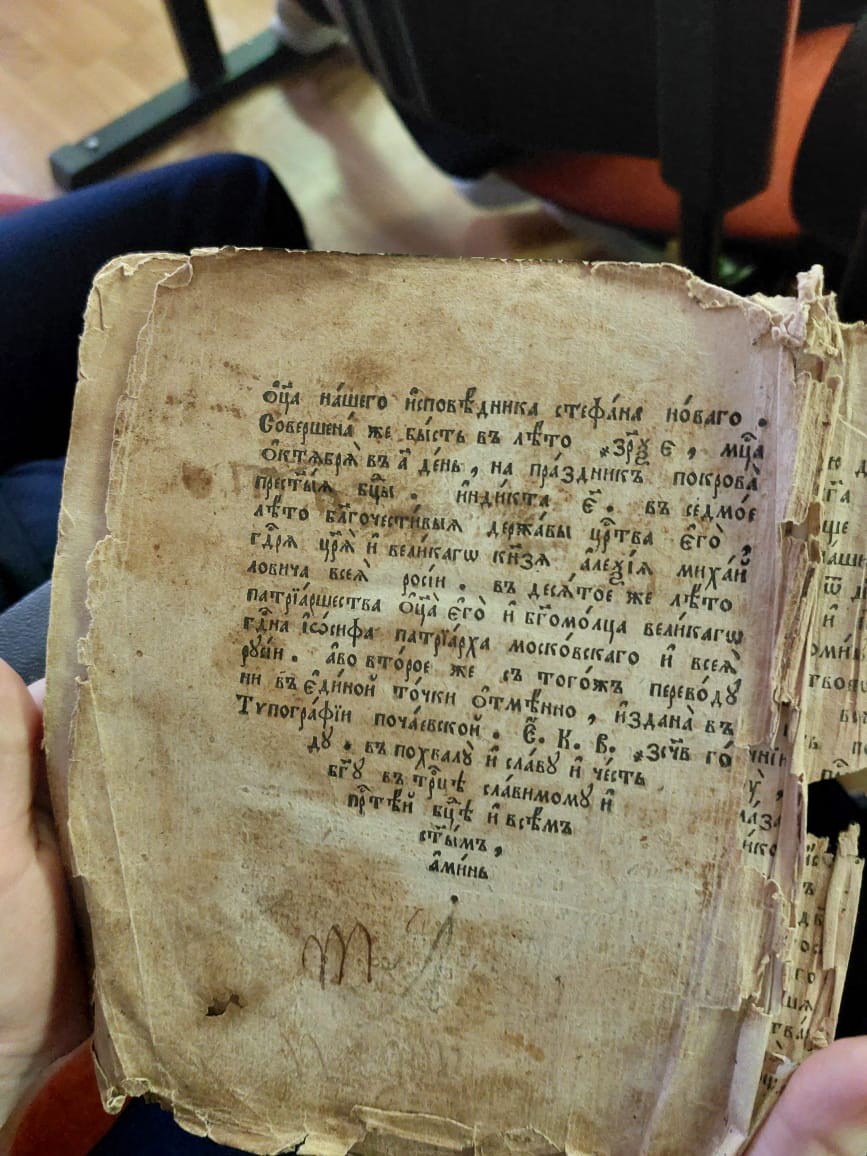 ѻ҆ц҃а на́шего и҆сповѣ́дника стефа́на но́ваго .
Совершена́ же бы́сть въ лѣ́то ҂зр҃ѯ є҃ , мц҃а
ѻ҆ктѧбрѧ̀ въ а҃ де́нь , на пра́здникъ покрова̀
прест҃ы́ѧ бц҃ы . и҆нди́кта є҃і . въ седмо́е
лѣ́то бл҃гочести́выѧ держа́вы цр҃тва є҆гѡ̀ ,
гд҃рѧ цр҃ѧ̀ и҆ вели́кагѡ кн҃зѧ а҆леѯі́ѧ миха́й
ловича всеѧ̀ росі́и . въ десѧ́тое же лѣ́то
патрїа́ршества ѻ҆ц҃а̀ є҆гѡ̀ и҆ бг҃омо́лца вели́кагѡ
гд҃на і҆ѡ́сифа патрїа́рха моско́вскаго и҆ всеѧ̀
рꙋсі́и . а҆во вто́рое же съ того́жъ перево́дꙋ
ни въ є҆ди́ной то́чки ѿмѣ́нно , и҆здана̀ въ
Типогра́фїи поча́евской . Є҃. К. В. ҂зсч҃в го́
дꙋ . въ похвалꙋ̀ и҆ сла́вꙋ и҆ че́сть
бг҃ꙋ въ трⷪ҇цѣ сла́вимомꙋ и҆
пртⷭ҇ѣ́й бц҃ѣ и҆ всѣ́мъ
ст҃ы́мъ ,
а҆ми́нь
.